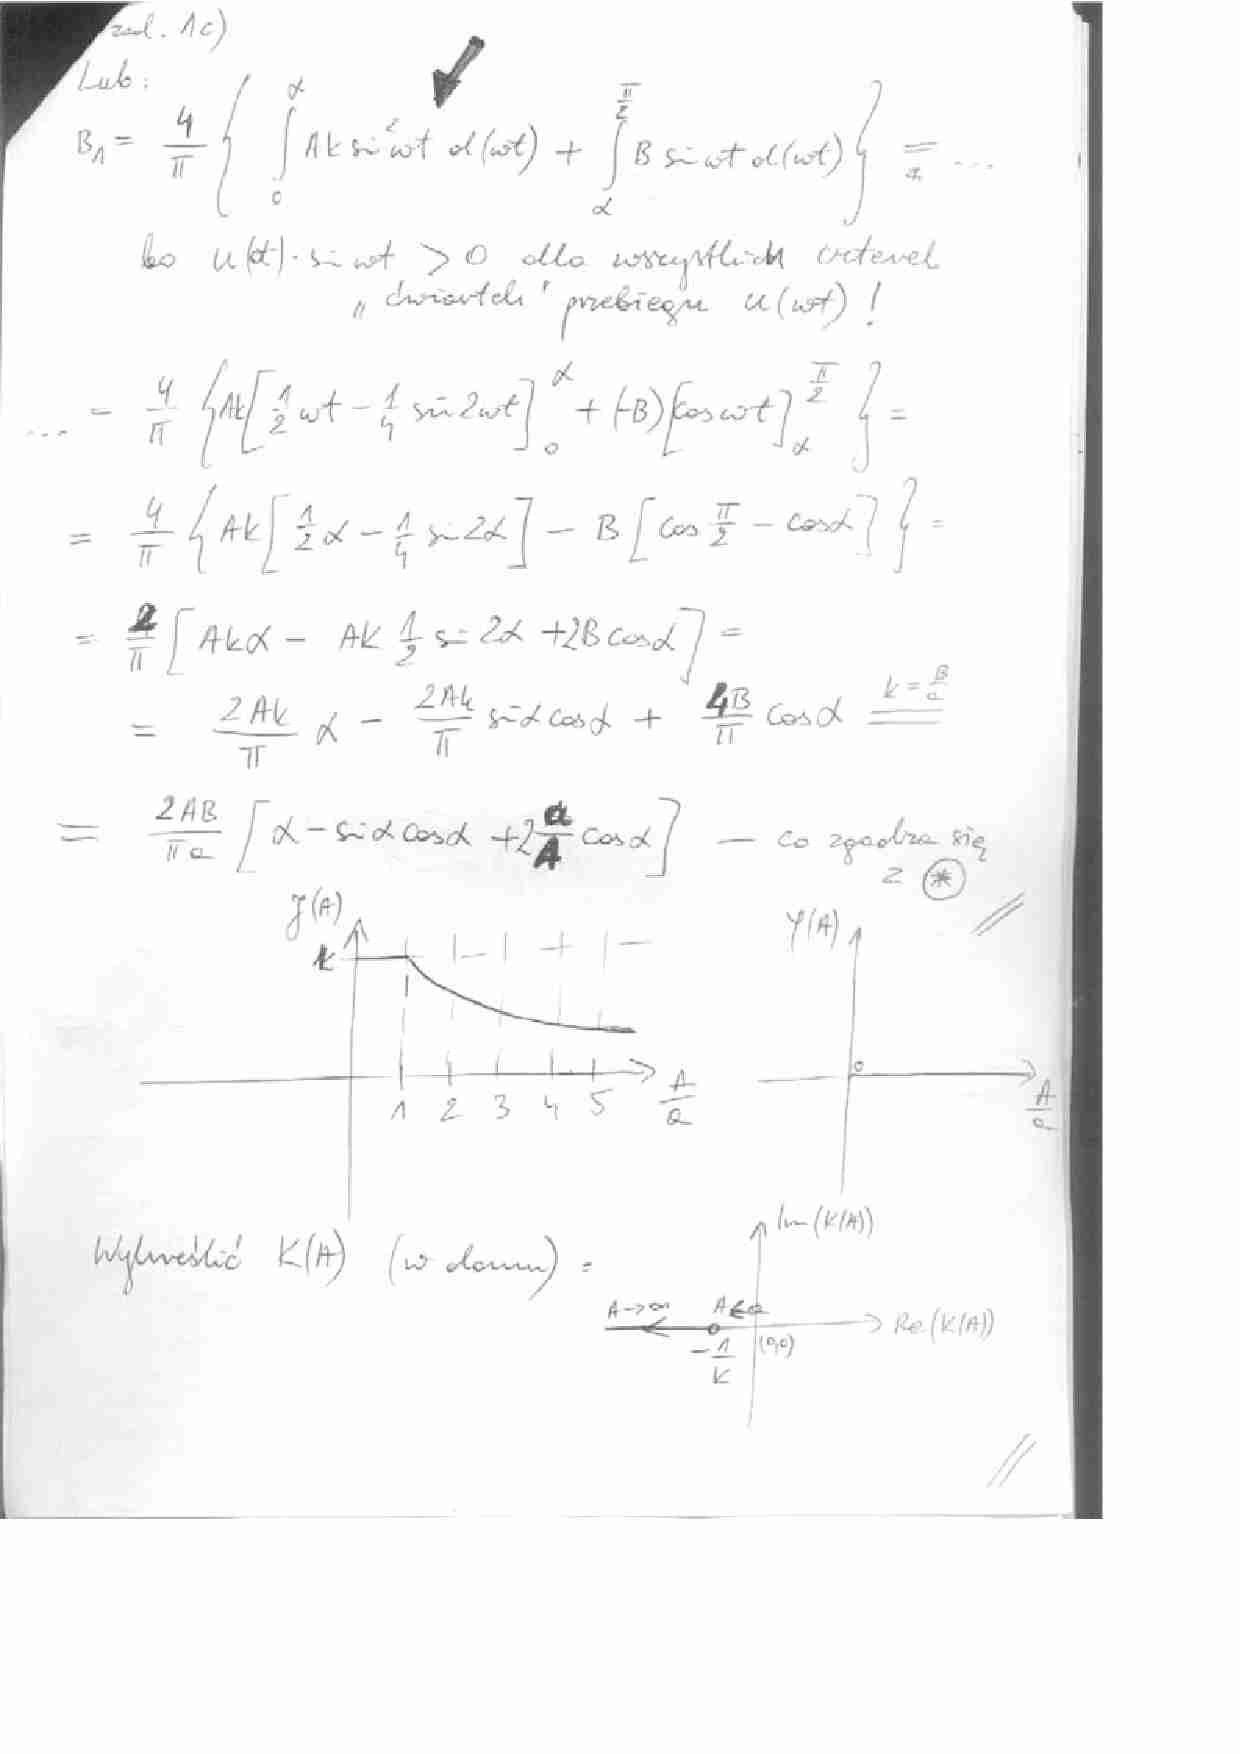 zad. 1c)
Lub:
B₁ = 4/π { ∫₀^α Ak sin²ωt d(ωt) + ∫_α^{π/2} B sin ωt d(ωt) } = ...
bo u(t)·sin ωt > 0 dla wszystkich czterech
„ćwiartek" przebiegu u(ωt)!
... = 4/π { Ak[1/2 ωt − 1/4 sin 2ωt]₀^α + (−B)[cos ωt]_α^{π/2} } =
= 4/π { Ak[1/2 α − 1/4 sin 2α] − B[cos π/2 − cos α] } =
= 2/π [Akα − Ak 1/2 sin 2α + 2B cos α] =
= 2Ak/π α − 2Ak/π sin α cos α + 4B/π cos α = k = B/a
= 2AB/πa [α − sin α cos α + 2 a/A cos α] — co zgadza się
z (*)
J(A)
φ(A)
k
0
1 2 3 4 5 A/a
A/a
Wykreślić K(A) (w domu) =
Im(K(A))
A→∞ A≤a
Re(K(A))
−1/k (0,0)